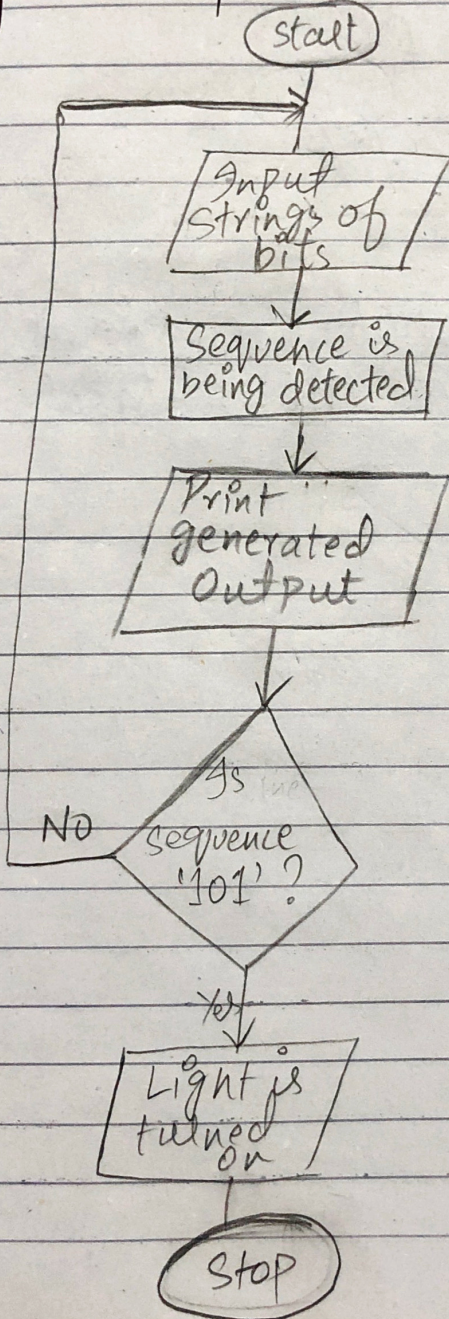 Start
Input
Strings of
bits
Sequence is
being detected
Print
generated
Output
Is
Sequence
'101' ?
No
Yes
Light is
turned
on
Stop